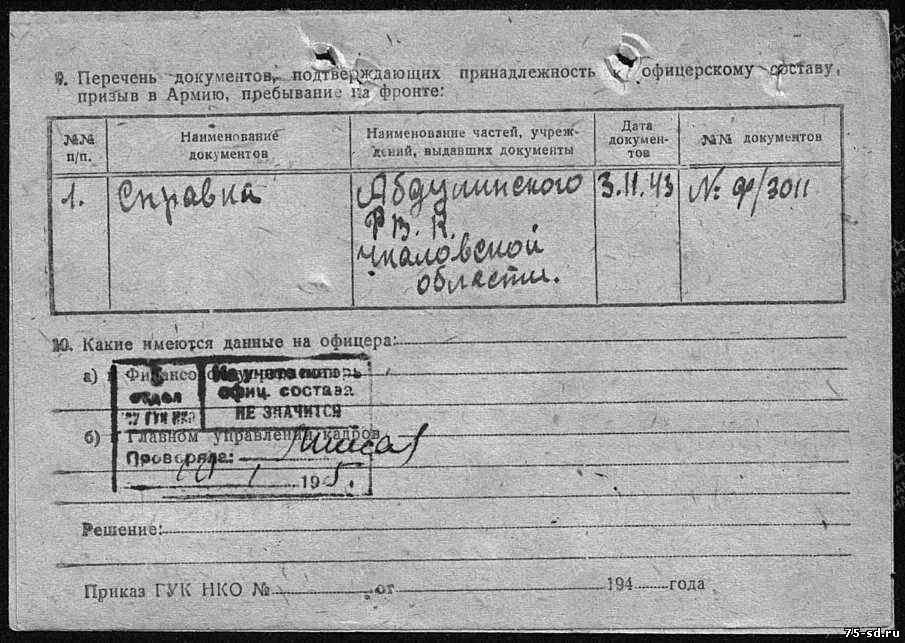 9. Перечень документов, подтверждающих принадлежность к офицерскому составу,
призыв в Армию, пребывание на фронте:
№№ п/п.
Наименование документов
Наименование частей, учреж-
дений, выдавших документы
Дата докумен-
тов
№№ документов
1. Справка Абдулинского 3.11.43 № Ф/3011
Р В. К.
Чкаловской
области.
10. Какие имеются данные на офицера:
а) Финансо
На учете потерь
отдел офиц. состава
ГУК НКО НЕ ЗНАЧИТСЯ
б) Главном управлении кадров
Проверяла:
19
Решение:
Приказ ГУК НКО № от 194 года
75-sd.ru